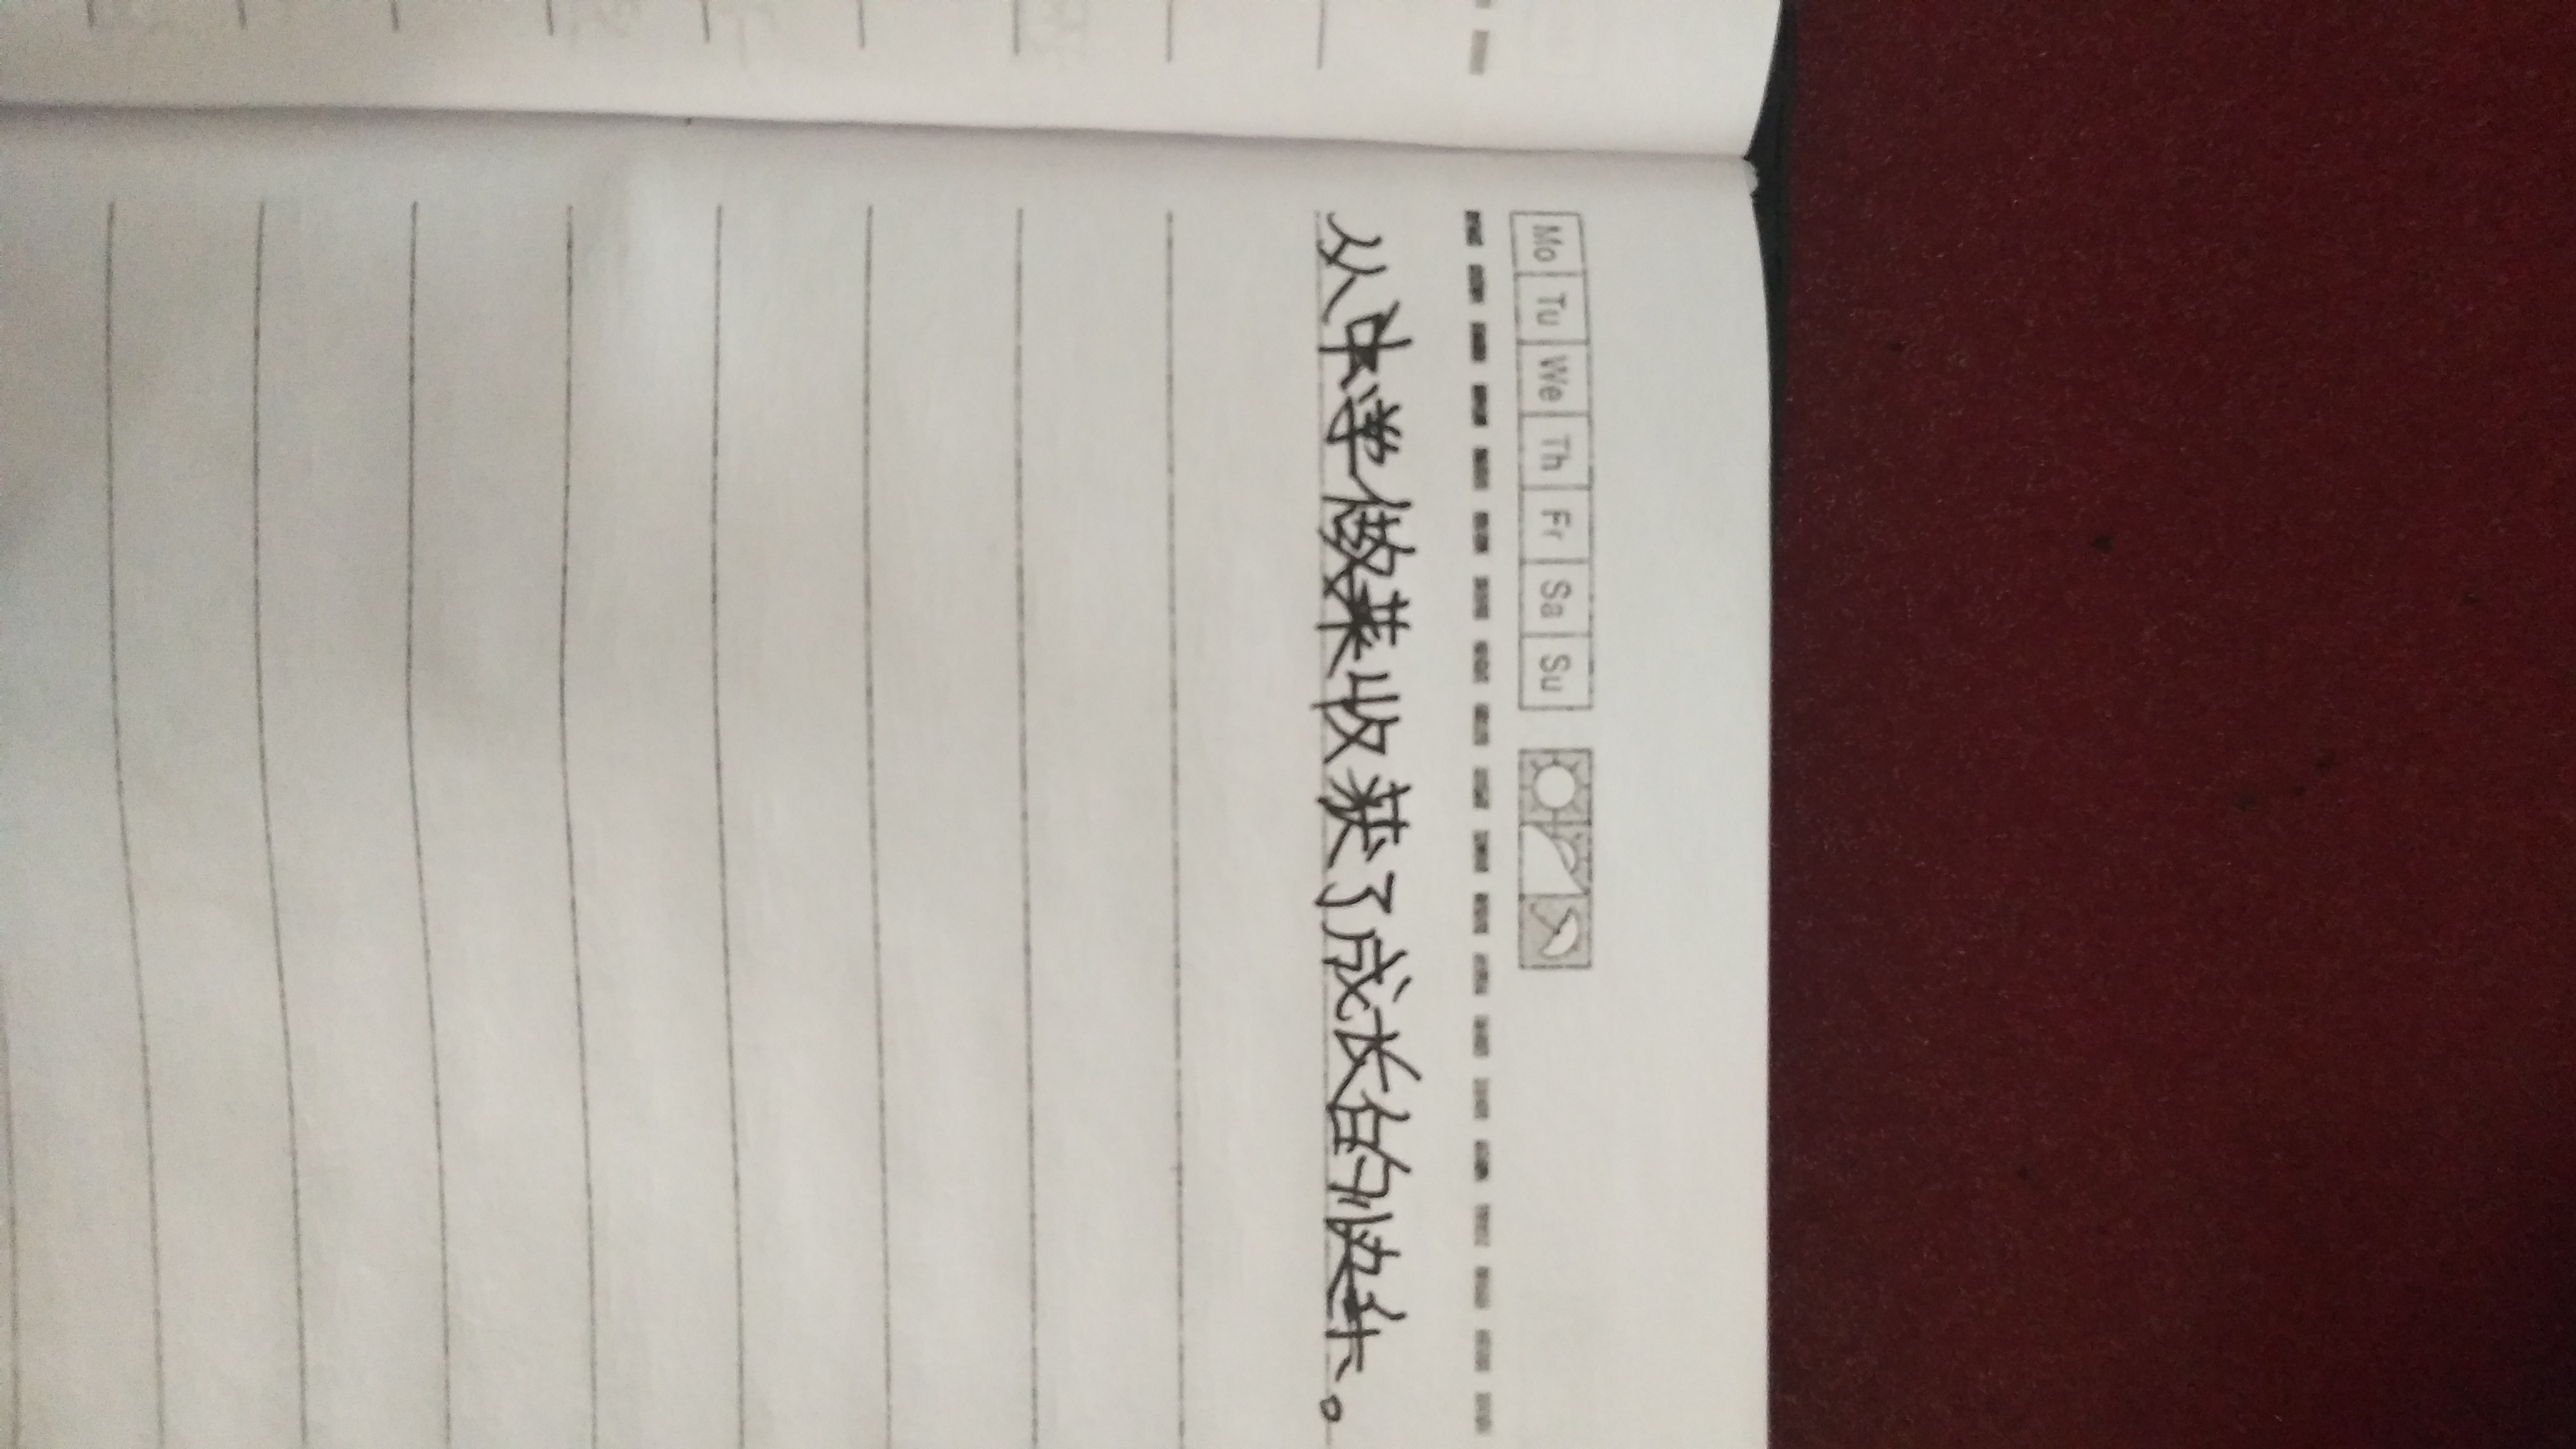 Mo Tu We Th Fr Sa Su
从中学做菜收获了成长的快乐。